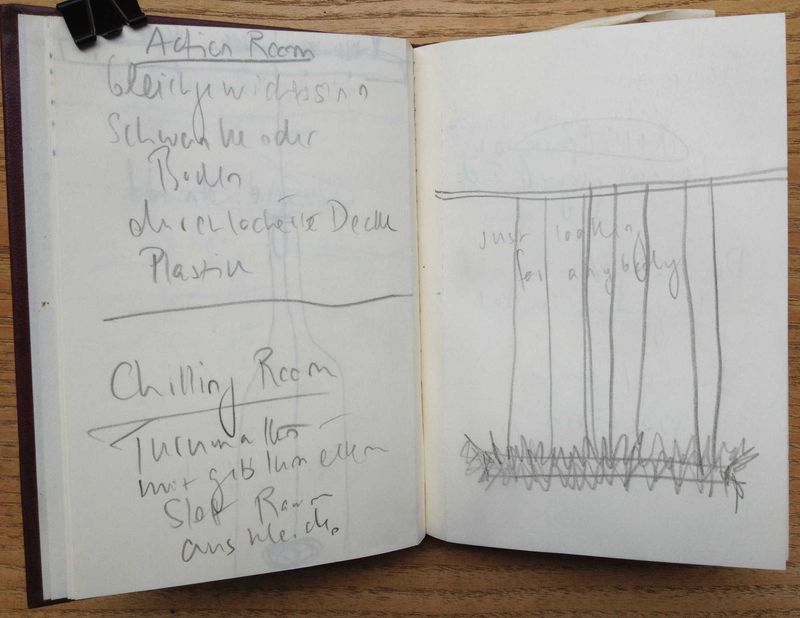 Action Room
Gleichgewichtssinn
Schwanke oder
Boden
durchlöcherte Decke
Plastik
Chilling Room
Turnmatten
mit geblümten
Stoff Raum
auskleiden
just looking
for anybody